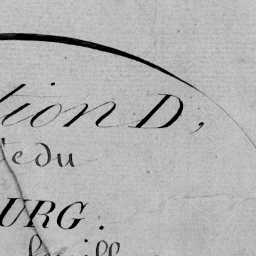 tion D,
le du
URG.